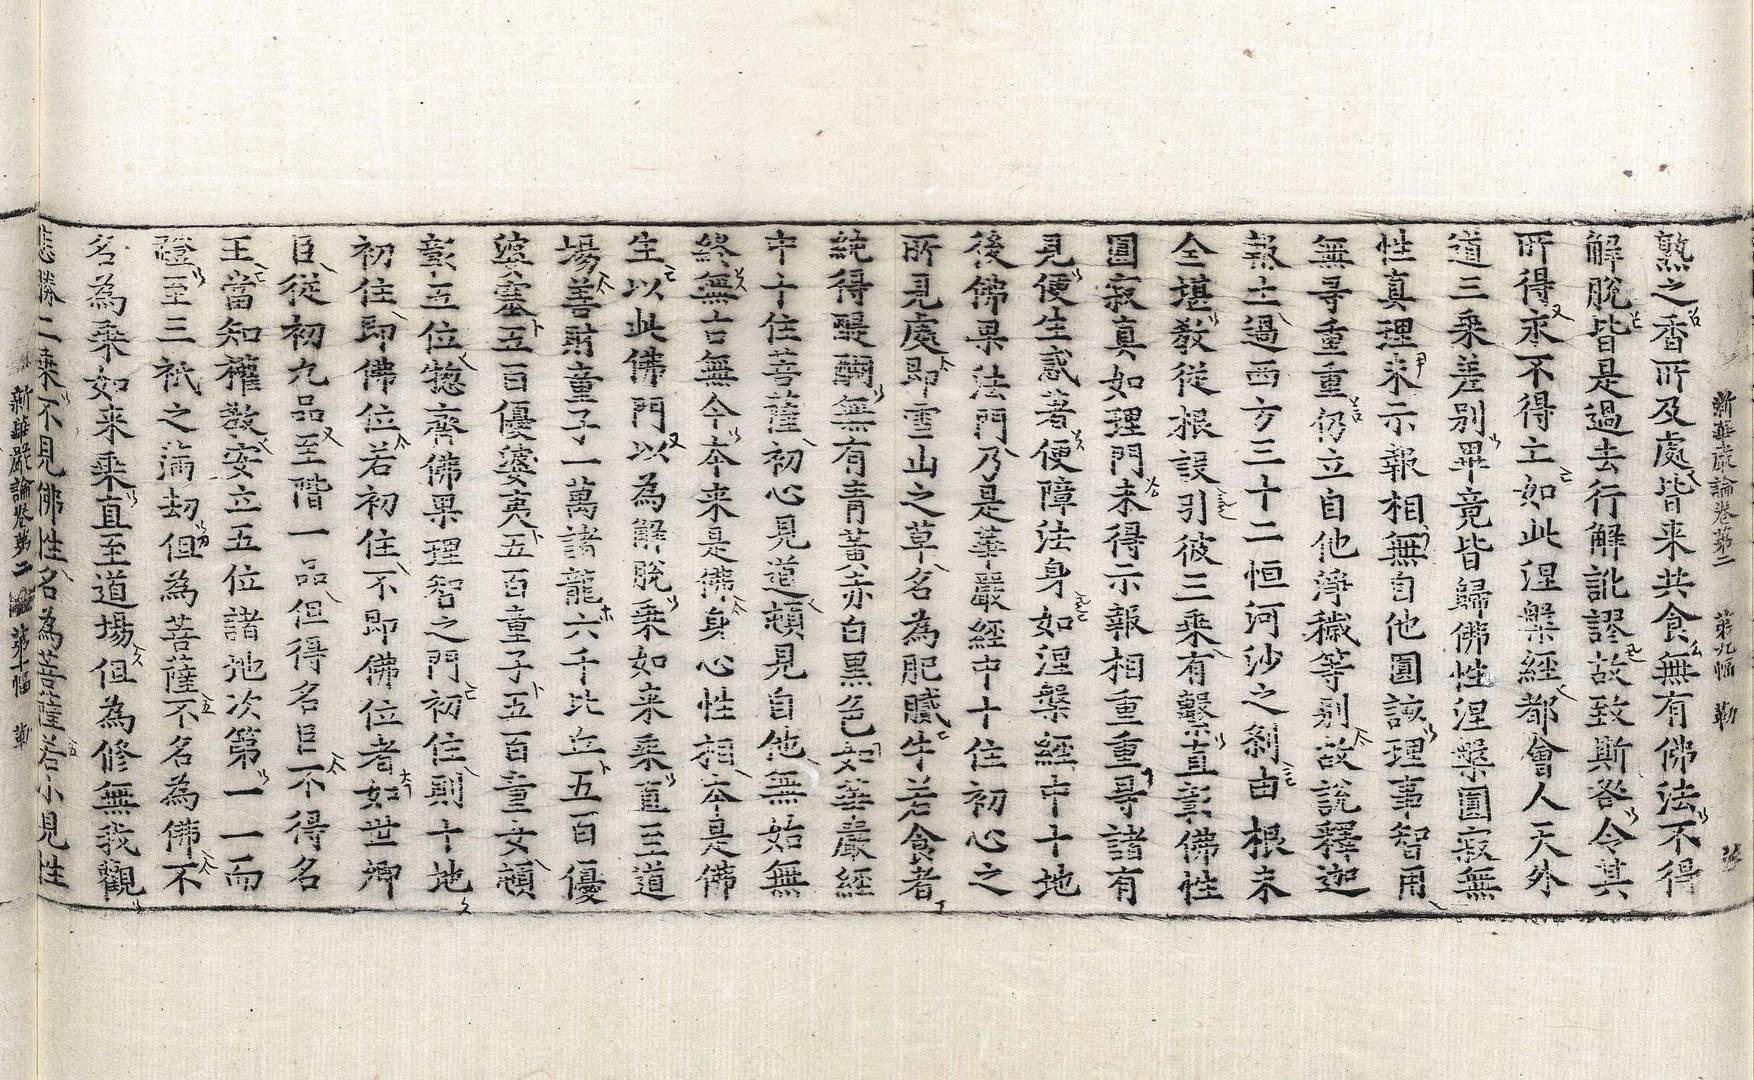 新華嚴論卷第二　第九幅　勒
熟之香所及處皆来共食無有佛法不得
解脫皆是過去行解訛謬故致斯咎令其
所得求不得土如此涅槃經都會人天外
道三乘差别畢竟皆歸佛性涅槃圓寂無
性真理未示報相無自他圓該理事智用
無㝵重重仍立自他淨穢等别故說釋迦
報土過西方三十二恒河沙之刹由根未
全堪敎從根設引彼三乘有繫直彰佛性
圓寂真如理門未得示報相重重㝵諸有
見便生惑著便障法身如涅槃經中十地
後佛果法門乃是華嚴經中十住初心之
所見處即雪山之草名為肥膩牛若食者
純得醍醐無有青黃赤白黑色如華嚴經
中十住菩薩初心見道頓見自他無始無
終無古無今本来是佛身心性相本是佛
生以此佛門以為解脫乘如来乘直至道
場善財童子一萬諸龍六千比丘五百優
婆塞五百優婆夷五百童子五百童女頓
彰五位惣齊佛果理智之門初住則十地
初住即佛位若初住不即佛位者如世卿
臣從初九品至階一品但得名臣不得名
王當知權敎安立五位諸地次第一一而
證至三祇之滿劫但為菩薩不名為佛不
名為乘如来乘直至道場但為修無我觀
悲勝二乘不見佛性名為菩薩若小見性
新華嚴論卷第二　第十幅　勒